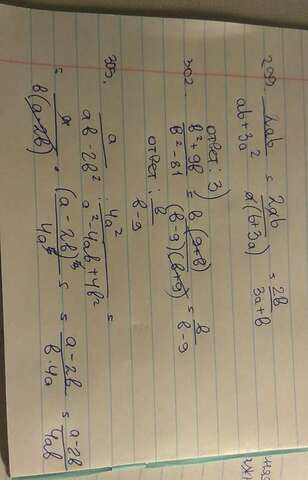 299. 2ab / ab+3a² = 2ab / a(b+3a) = 2b / 3a+b
ответ: 3)
302. b²+9b / b²-81 = b(9+b) / (b-9)(b+9) = b / b-9
ответ: b / b-9
305. a / ab-2b² : 4a² / a²-4ab+4b² =
= a / b(a-2b) · (a-2b)² / 4a² = a-2b / b·4a = a-2b / 4ab